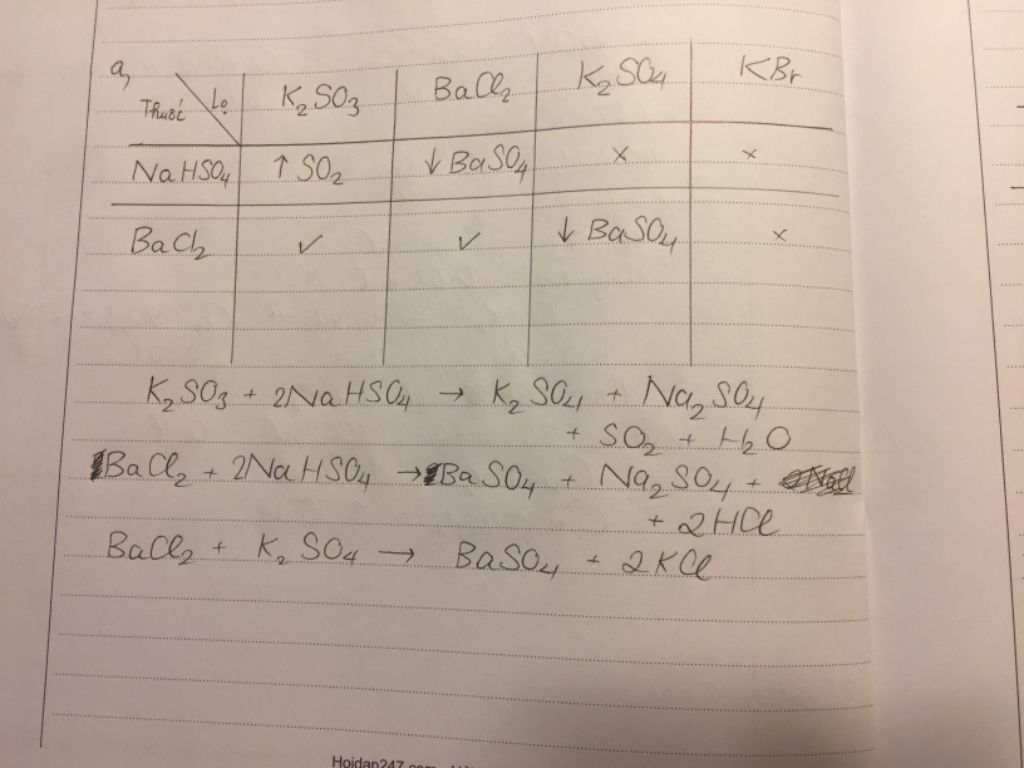 a,
Thuốc Lọ K₂SO₃ BaCl₂ K₂SO₄ KBr
NaHSO₄ ↑ SO₂ ↓ BaSO₄ × ×
BaCl₂ ✓ ✓ ↓ BaSO₄ ×
K₂SO₃ + 2NaHSO₄ → K₂SO₄ + Na₂SO₄
+ SO₂ + H₂O
BaCl₂ + 2NaHSO₄ → BaSO₄ + Na₂SO₄ +
+ 2HCl
BaCl₂ + K₂SO₄ → BaSO₄ + 2KCl
Hoidan247.com